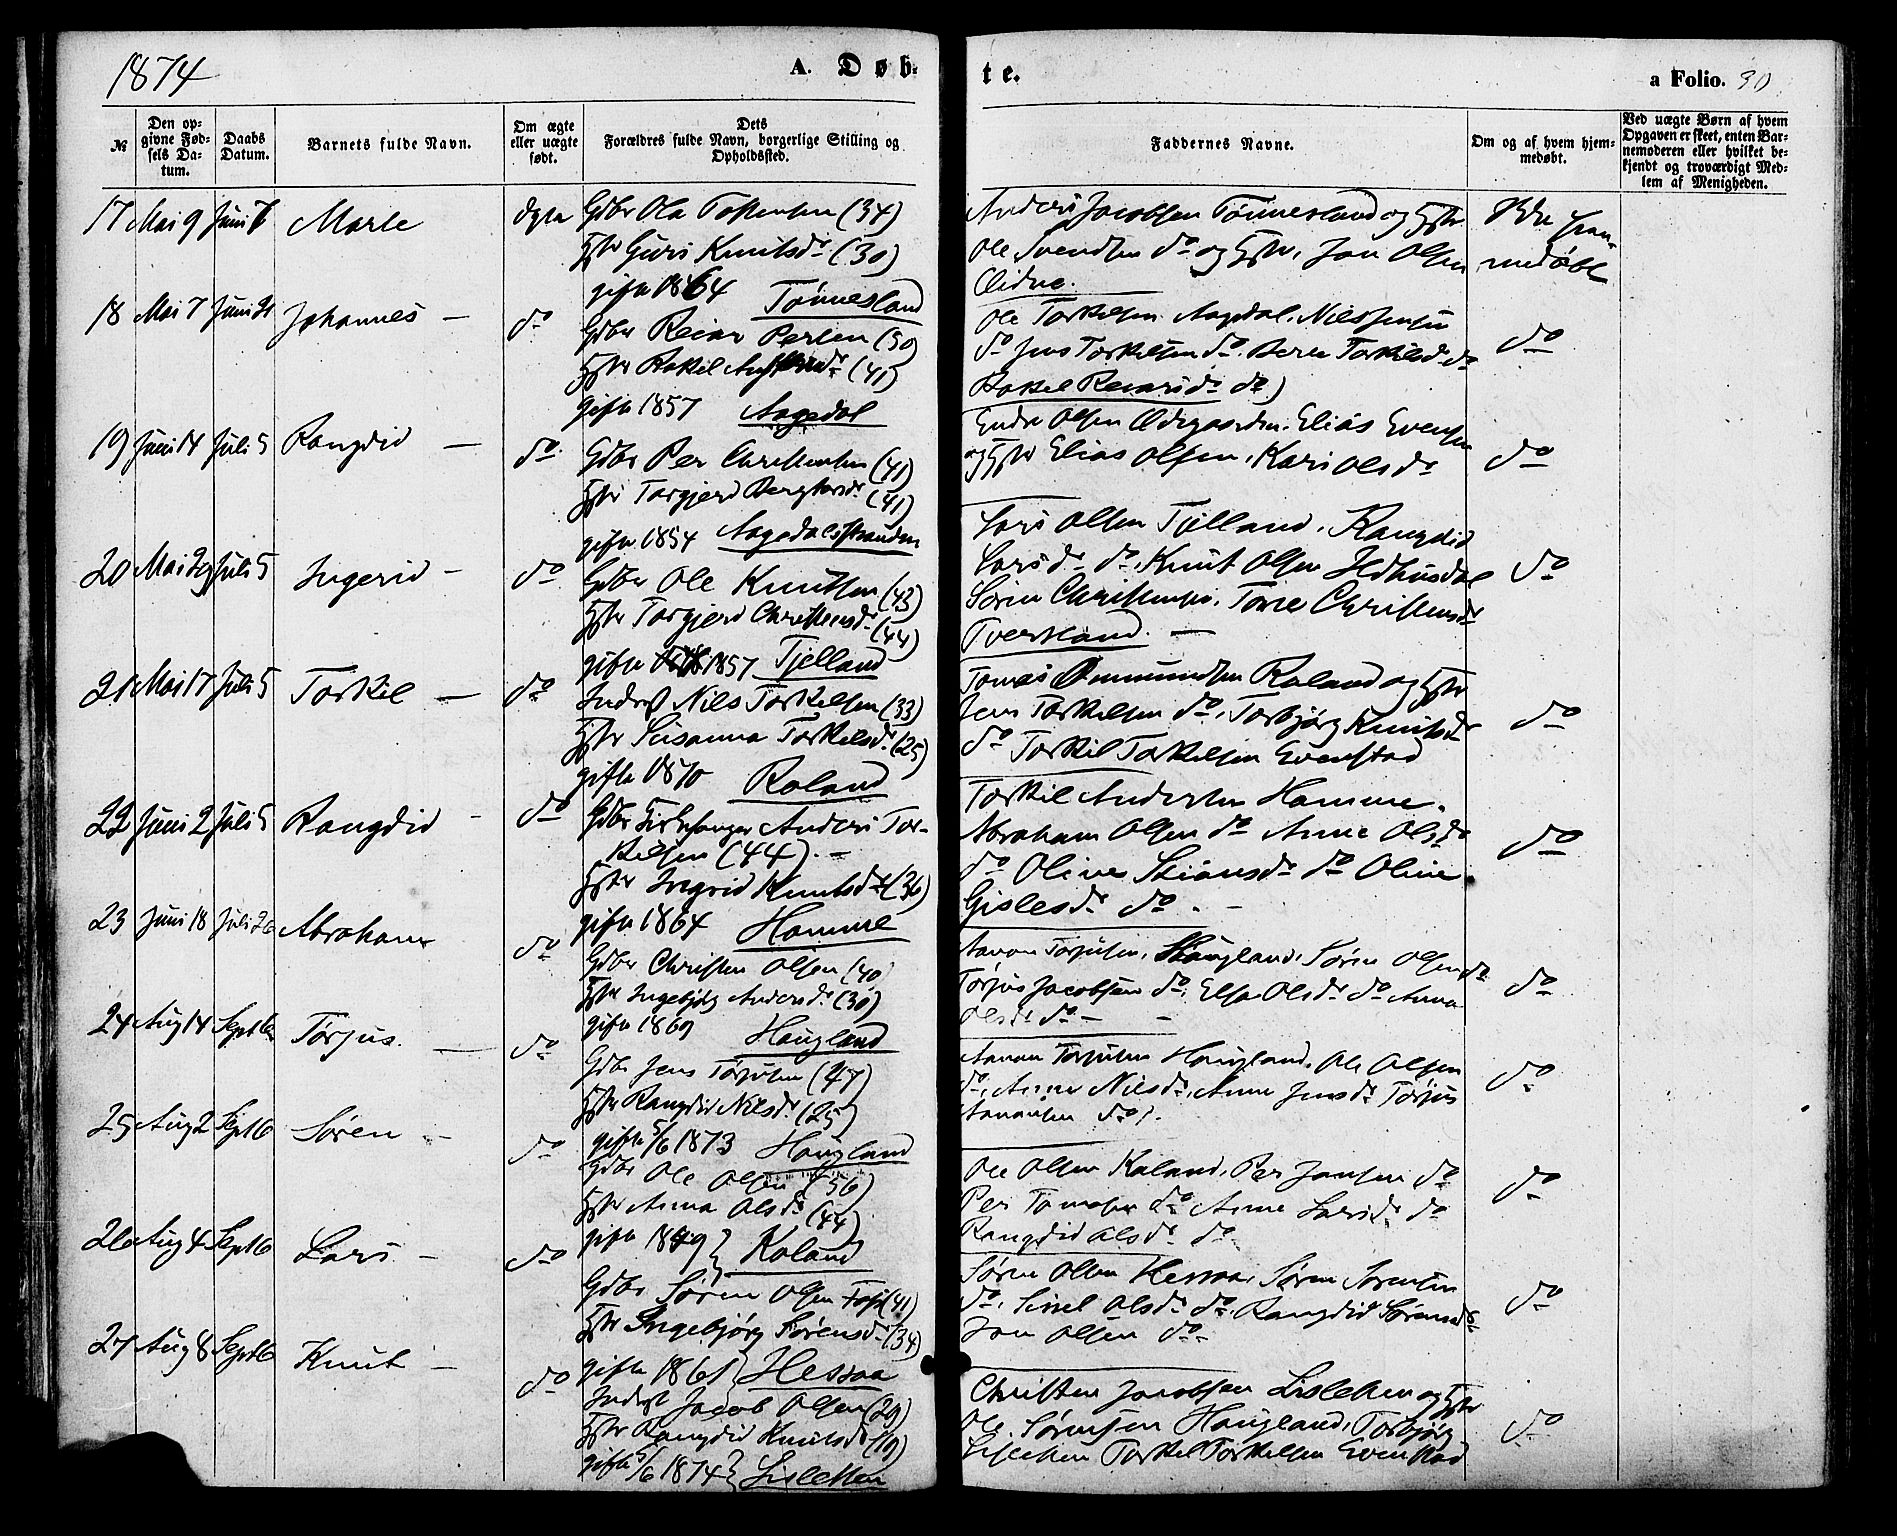 1874
A. Døb-
te.
a Folio. 30
№
Den op-
givne Fød-
sels Da-
tum.
Daabs
Datum.
Barnets fulde Navn.
Om ægte
eller uægte
født.
Dets
Forældres fulde Navn, borgerlige Stilling og
Opholdssted.
Faddernes Navne.
Om og af hvem hjem-
medøbt.
Ved uægte Børn af hvem
Opgaven er skeet, enten Bar-
nemoderen eller hvilket be-
kjendt og troværdigt Med-
lem af Menigheden.
17 Mai 9 Juni 7 Marte ægte
Gdbr Ola Tostensen (34)
Hstr Guri Knutsdr (30)
gifte 1864 Tønnesland
Anders Jacobsen Tønnesland og Hstr
Ole Svendsen do og Hstr, Jon Olsen
Eidne.
Ikke hjem-
medøbt
18 Mai 7 Juni 21 Johannes — do
Gdbr Reiar Persen (50
Hstr Rakel (41)
gifte 1857 Aagedal
Ole Torkelsen Aagedal, Nils Jensen
do Jens Torkelsen do. Berte Torkelsdr do
Rakel Reiarsdr do)
do
19 Juni 14 Juli 5 Rangdid — do
Gdbr Per Christensen (41)
Hstr Torgjerd Bergtorsdr (41)
gifte 1854 Aagedalsstranden
Endre Olsen Ødegaarden. Elias Evensen
og Hstr Elias Olsen, Kari Olsdr
do
20 Mai 29 Juli 5 Ingerid — do
Gdbr Ole Knutsen (43)
Hstr Torgjerd Christensdr (44)
gifte 1857 Tjelland
Lars Olsen Tjelland, Rangdid
Larsdr do, Knut Olsen Ildhusdal
Søren Christensen, Tone Christensdr
Tversland. —
do
21 Mai 17 Juli 5 Torkel — do
Inderst Nils Torkelsen (33)
Hstr Susanna Torkelsdr (25)
gifte 1870 Roland
Tomes Ommundsen Roland og Hstr
Jens Torkelsen do, Torbjørg Knutsdr
do Torkil Torkelsen Evenstad
do
22 Juni 2 Juli 5 Rangdid — do
Gdbr Kirkesanger Anders Tor-
kelsen (44). —
Hstr Ingrid Knutsdr (36)
gifte 1864 Homme
Torkil Andersen Homme.
Abraham Olsen do Anne Olsdr
do Oline Stiansdr do Oline
Gislesdr do. —
do
23 Juni 18 Juli 26 Abraham do
Gdbr Christen Olsen (40)
Hstr Ingebjørg Andersdr (30)
gifte 1869 Haugland
Aanon Torjusen, Haugland, Søren Olsen do
Torjus Jacobsen do, Elsa Olsdr do Anna
Olsdr do — —
do
24 Aug 14 Sept 6 Tørjus. — do
Gdbr Jens Tørjusen (47)
Hstr Rangdid Nilsdr (25)
gifte 5/6 1873 Haugland
Aanon Torjusen Haugland, Ole Olsen
do, Anne Nilsdr, Anne Jensdr Tørjus
Aanonsen do).
do
25 Aug 2 Sept 6 Søren — do
Gdbr Ole Olsen (56)
Hstr Anna Olsdr (44)
gifte 1849} Roland
Ole Olsen Roland, Per Jansen do
Per Tomesen do Anne Larsdr do
Rangdid Olsdr do
do
26 Aug 4 Sept 6 Lars — do
Gdbr Søren Olsen (41)
Hstr Ingebjørg Sørensdr (34)
gifte 1861} Hessaa
Søren Olsen Hessaa, Søren Sørensen
do, Sissel Olsdr do, Rangdid Sørensdr
Jon Olsen do
do
27 Aug 8 Sept 6 Knut — do
Inderst Jacob Olsen (29)
Hstr Rangdid Knutsdr (19)
gifte 5/6 1874} Lisletten
Christen Jacobsen Lisletten og Hstr
Ole Sørensen Haugland, Torbjørg
Lisletten Torkel Torkelsen Evenstad
do